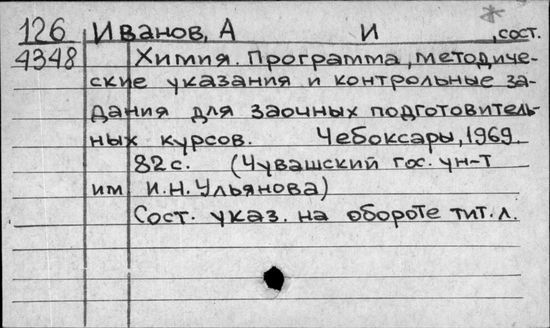 126 Иванов, А И , сост.
4348 Химия. Программа, методиче-
ские указания и контрольные за-
дания для заочных подготовитель-
ных курсов. Чебоксары, 1969.
82 с. (Чувашский гос. ун-т
им И.Н. Ульянова)
Сост. указ. на обороте тит. л.